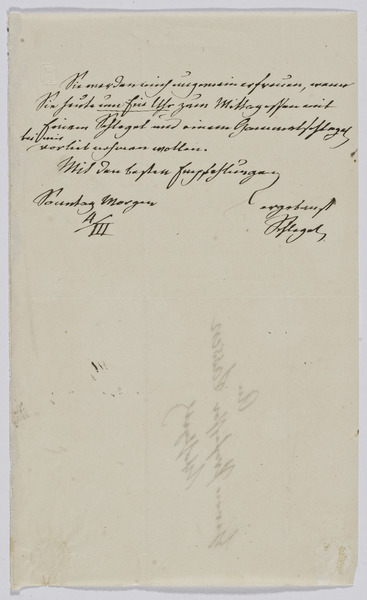 Sie werden mich ungemein erfreuen, wenn
Sie heute um Ein Uhr zum Mittagessen mit
einem Schlegel und einem Hammelschlegel
bei mir
vorlieb nehmen wollen.
Mit den besten Empfehlungen
Sonntag Morgen
ergebenst
4/III
Schlegel